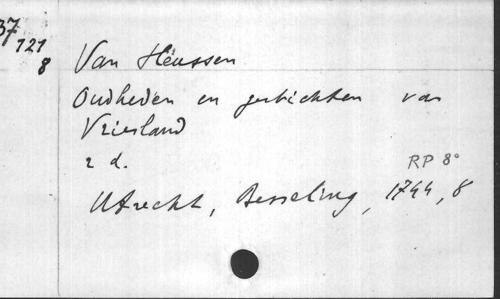 37
121
8
Van Heussen
Oudheden en gestichten van
Vriesland
2 d.
RP 8°
Utrecht, Besseling, 1744, 8